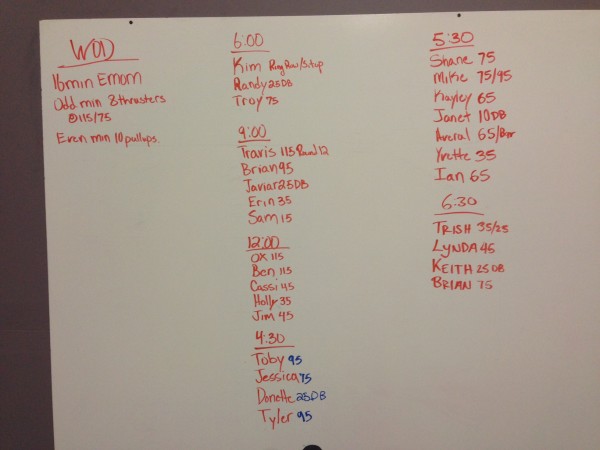 WOD
16min Emom
Odd min 8 thrusters
@115/75
Even min 10 pullups.
6:00
Kim Ring Row/Situp
Randy 25DB
Troy 75
9:00
Travis 115 Round 12
Brian 95
Javiar 25DB
Erin 35
Sam 15
12:00
OX 115
Ben 115
Cassi 45
Holly 35
Jim 45
4:30
Toby 95
Jessica 75
Donette 25DB
Tyler 95
5:30
Shane 75
Mike 75/95
Kayley 65
Janet 10DB
Averal 65/Bar
Yvette 35
Ian 65
6:30
TRISH 35/25
LYNDA 45
KEITH 25 DB
BRIAN 75